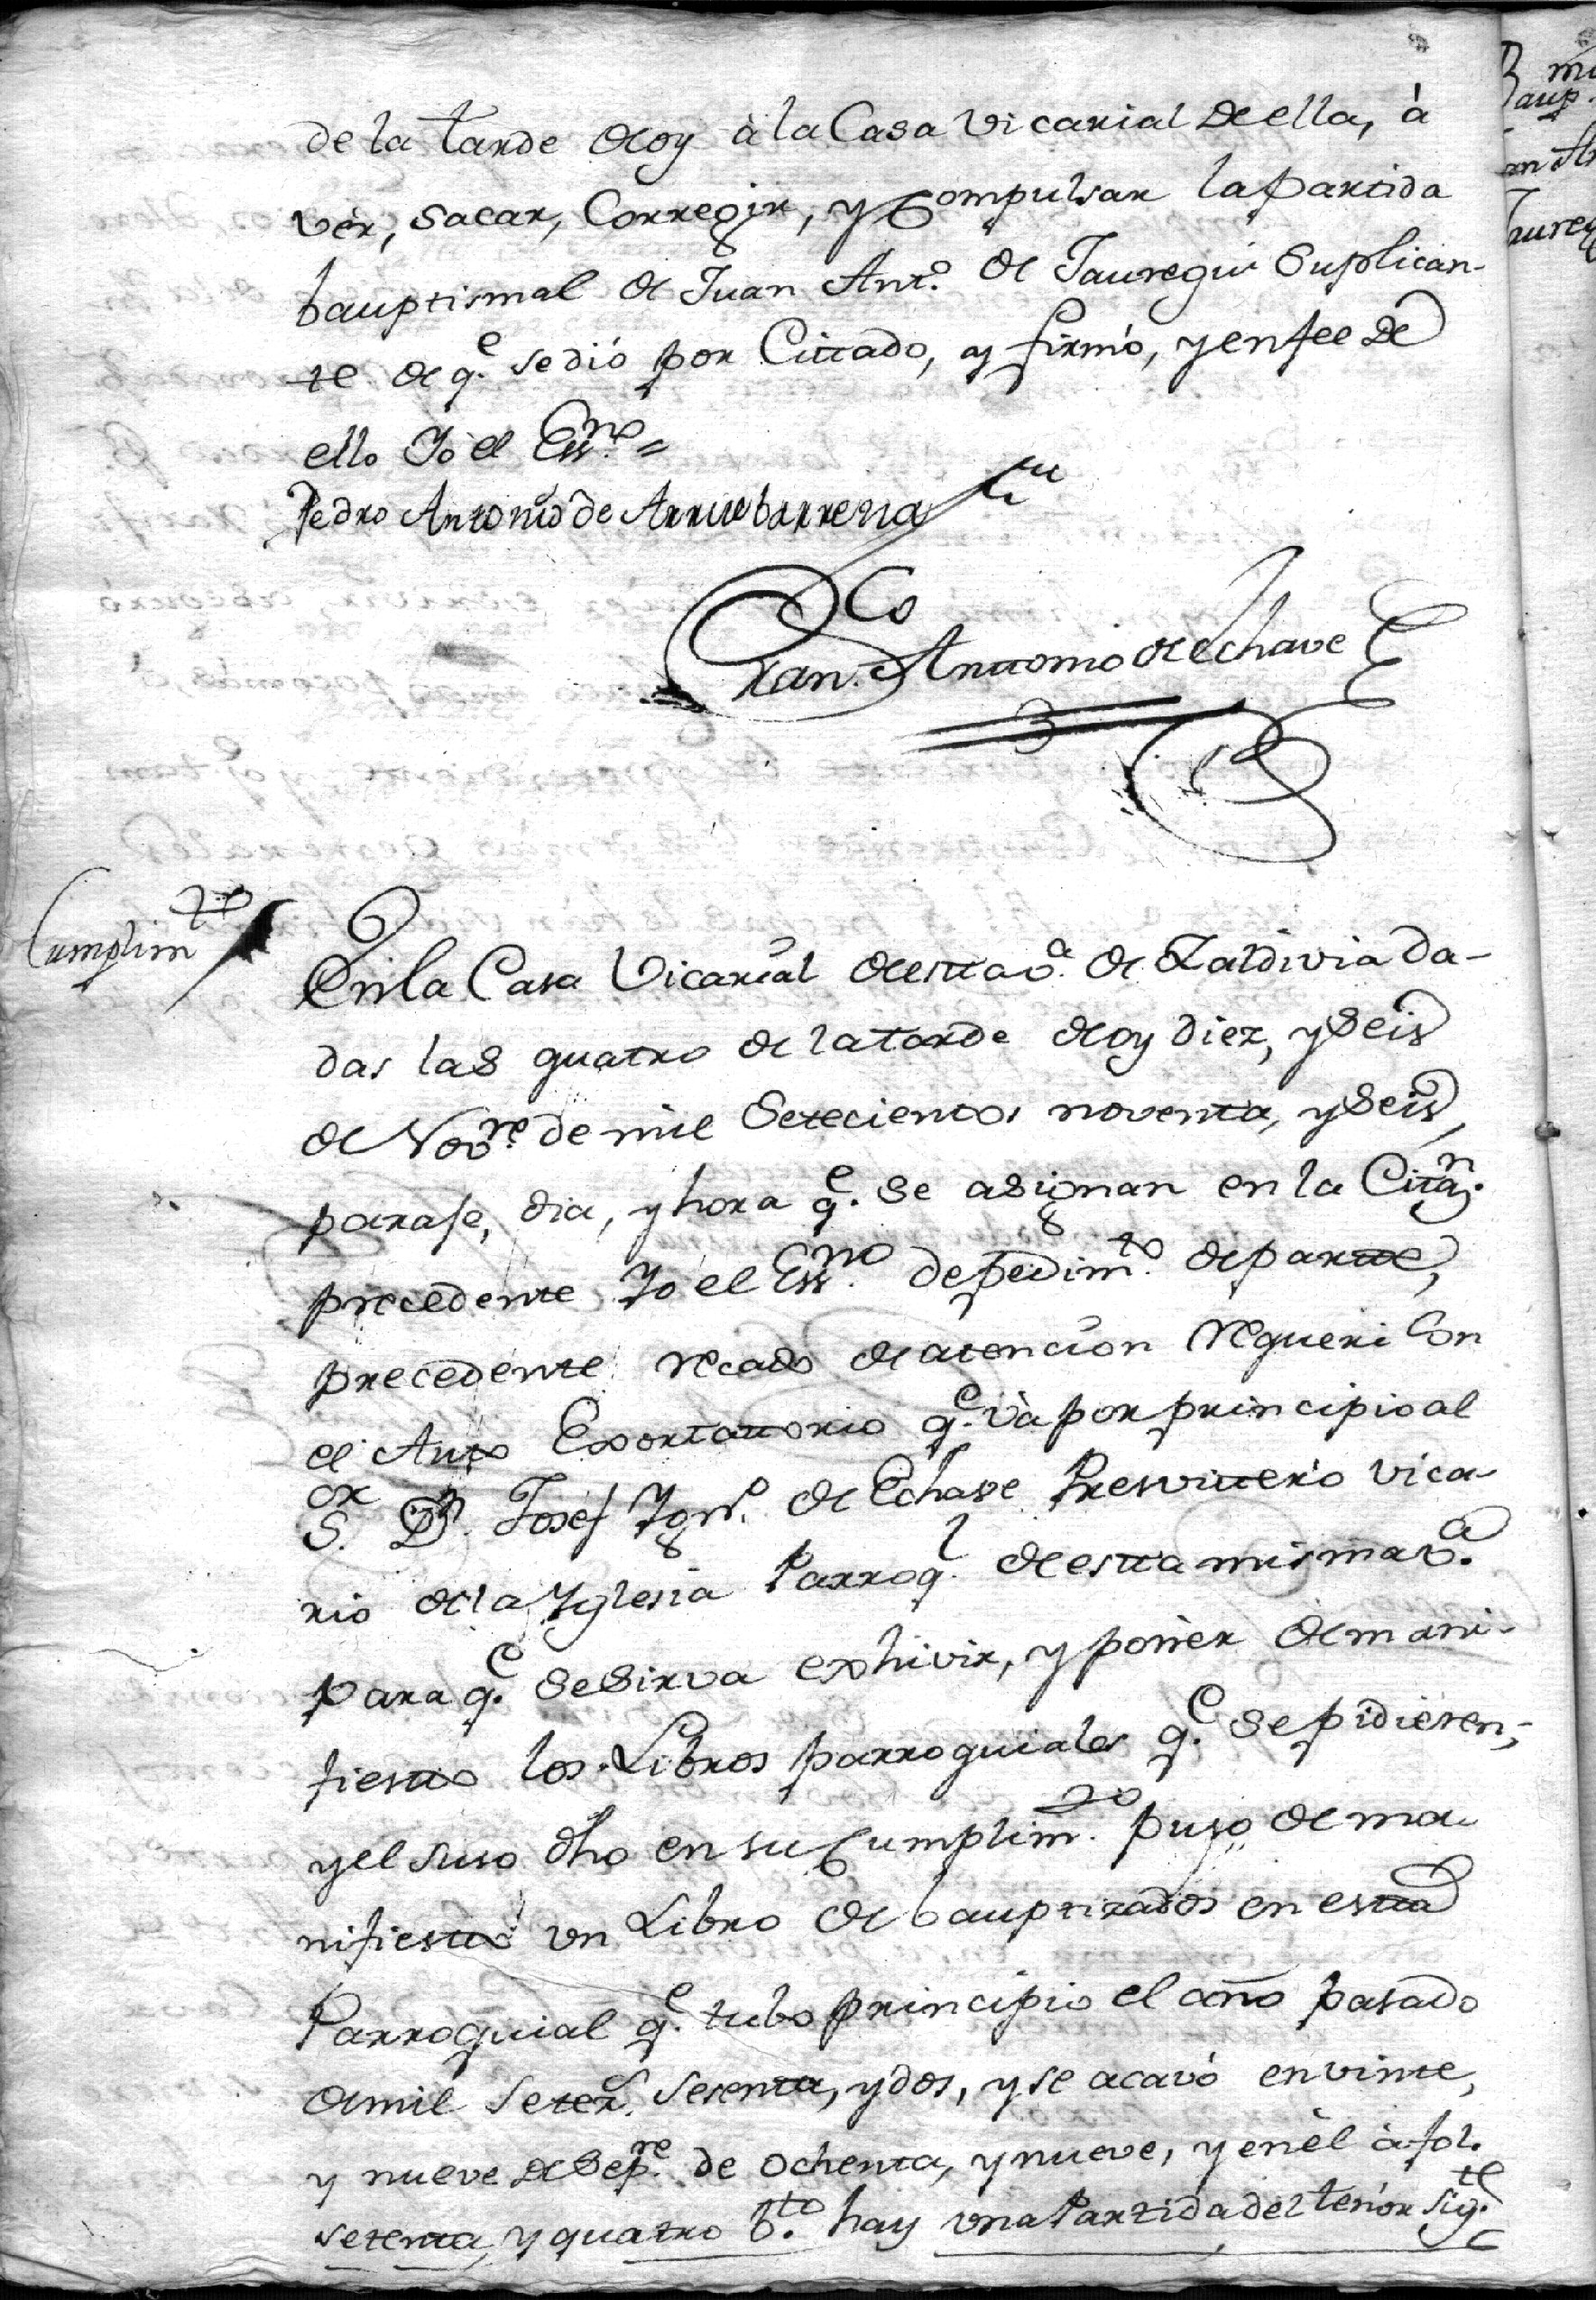 de la tarde de oy à la Casa Vicarial de ella, à
ver, sacar, Corregir, y Compulsar la partida
bauptismal de Juan Ant.º de Jauregui Suplican-
te de q.e se dió por Cittado, y firmó, y en fee de
ello Yo el Ess.no =
Pedro Antonio de Arruebarrena
Fran.co Antonio de Echave
Cumplim.to
En la Casa Vicarial de esta v.a de Zaldivia da-
das las quatro de la tarde de oy diez, y seis
de Nov.re de mil Setecientos noventa, y seis,
parage, dia, y hora q.e se asignan en la Cita.n
precedente Yo el Ess.no de pedim.to de parte,
precedente recado de atencion requeri Con
el Auto Exortattorio q.e và por principio al
S.or D.n Josef Ign.o de Echave Presvittero Vica-
rio de la Yglesia Parroq.l de esta misma v.a
para q.e se sirva exhivir, y poner de mani-
fiesto los Libros parroquiales q.e se pidiesen,
y el suso dho en su Cumplim.to puso de ma-
nifiesto un Libro de bauptizados en esta
Parroquial q.e tubo principio el año pasado
de mil setec.s sesenta, y dos, y se acavó en vinte,
y nueve de Sep.re de ochenta, y nueve, y en èl à fol.
setenta, y quatro b.to hay una Partida del tenor sig.te